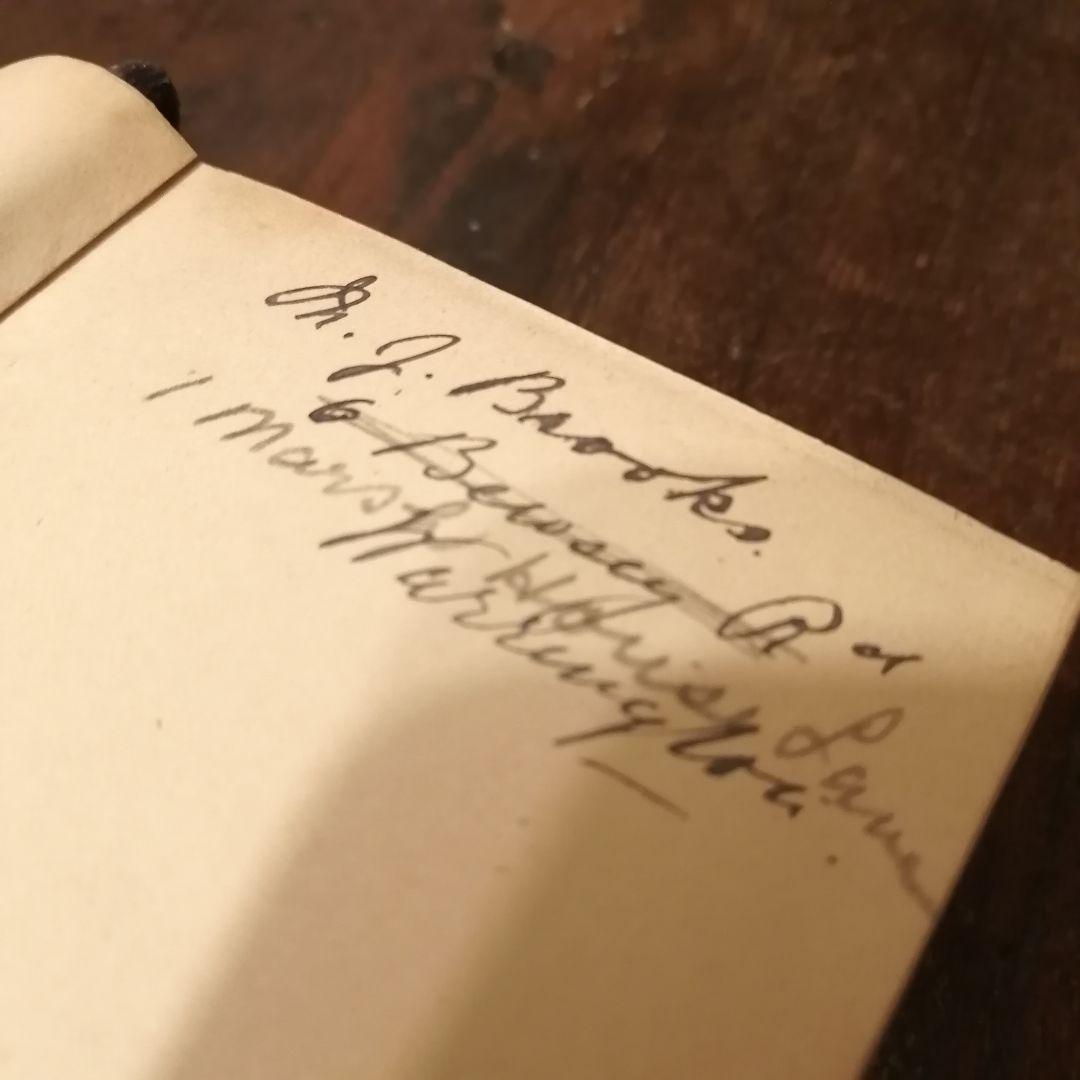 M. J. Brooks.
6 Bewsey Rd
1 Marsh House Lane
Warrington.